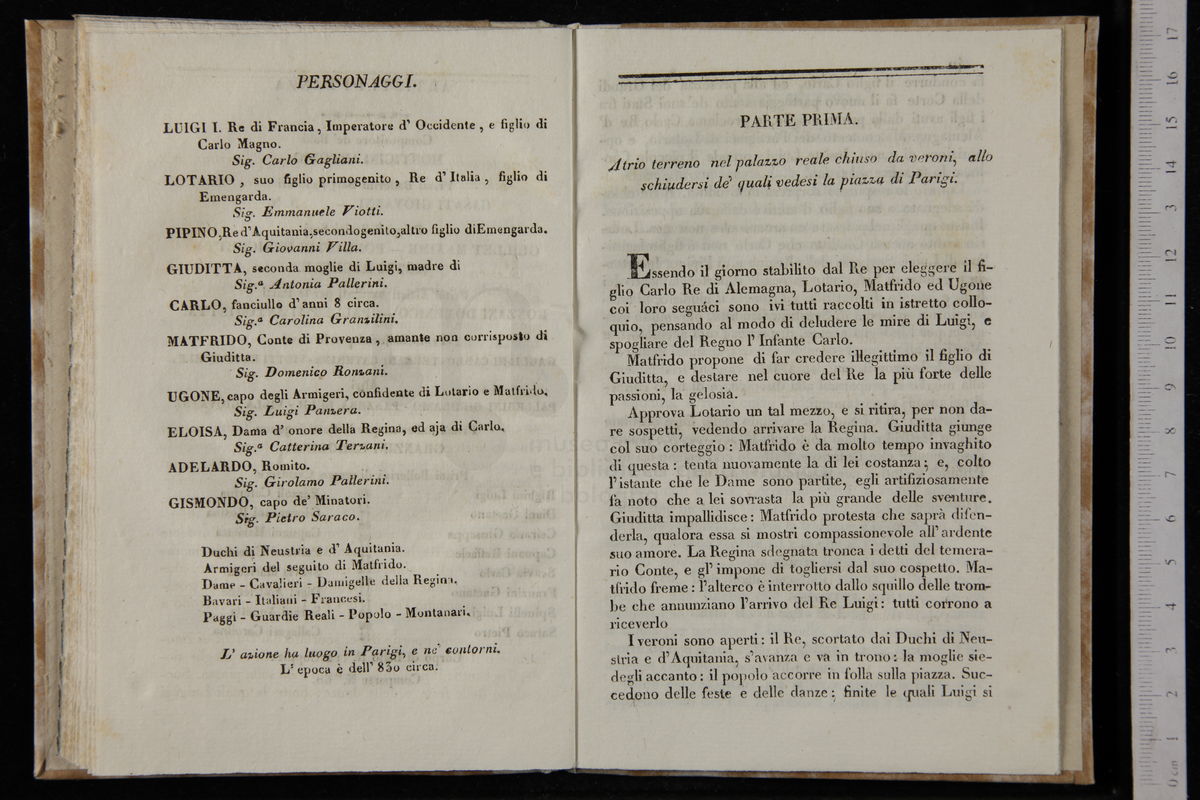 PERSONAGGI.
LUIGI I. Re di Francia, Imperatore d' Occidente, e figlio di
Carlo Magno.
Sig. Carlo Gagliani.
LOTARIO, suo figlio primogenito, Re d' Italia, figlio di
Emengarda.
Sig. Emmanuele Viotti.
PIPINO, Re d'Aquitania, secondogenito, altro figlio di Emengarda.
Sig. Giovanni Villa.
GIUDITTA, seconda moglie di Luigi, madre di
Sig.a Antonia Pallerini.
CARLO, fanciullo d' anni 8 circa.
Sig.a Carolina Granzilini.
MATFRIDO, Conte di Provenza, amante non corrisposto di
Giuditta.
Sig. Domenico Ronzani.
UGONE, capo degli Armigeri, confidente di Lotario e Matfrido.
Sig. Luigi Panzera.
ELOISA, Dama d' onore della Regina, ed aja di Carlo.
Sig.a Catterina Terzani.
ADELARDO, Romito.
Sig. Girolamo Pallerini.
GISMONDO, capo de' Minatori.
Sig. Pietro Saraco.
Duchi di Neustria e d' Aquitania.
Armigeri del seguito di Matfrido.
Dame - Cavalieri - Damigelle della Regina.
Bavari - Italiani - Francesi.
Paggi - Guardie Reali - Popolo - Montanari.
L' azione ha luogo in Parigi, e ne' contorni.
L' epoca è dell' 830 circa.
PARTE PRIMA.
Atrio terreno nel palazzo reale chiuso da veroni, allo
schiudersi de' quali vedesi la piazza di Parigi.
Essendo il giorno stabilito dal Re per eleggere il fi-
glio Carlo Re di Alemagna, Lotario, Matfrido ed Ugone
coi loro seguáci sono ivi tutti raccolti in istretto collo-
quio, pensando al modo di deludere le mire di Luigi, e
spogliare del Regno l' Infante Carlo.
Matfrido propone di far credere illegittimo il figlio di
Giuditta, e destare nel cuore del Re la più forte delle
passioni, la gelosia.
Approva Lotario un tal mezzo, e si ritira, per non da-
re sospetti, vedendo arrivare la Regina. Giuditta giunge
col suo corteggio: Matfrido è da molto tempo invaghito
di questa: tenta nuovamente la di lei costanza; e, colto
l'istante che le Dame sono partite, egli artifiziosamente
fa noto che a lei sovrasta la più grande delle sventure.
Giuditta impallidisce: Matfrido protesta che saprà difen-
derla, qualora essa si mostri compassionevole all' ardente
suo amore. La Regina sdegnata tronca i detti del temera-
rio Conte, e gl' impone di togliersi dal suo cospetto. Ma-
tfrido freme: l'alterco è interrotto dallo squillo delle trom-
be che annunziano l'arrivo del Re Luigi: tutti corrono a
riceverlo
I veroni sono aperti: il Re, scortato dai Duchi di Neu-
stria e d'Aquitania, s'avanza e va in trono: la moglie sie-
degli accanto: il popolo accorre in folla sulla piazza. Suc-
cedono delle feste e delle danze; finite le quali Luigi si